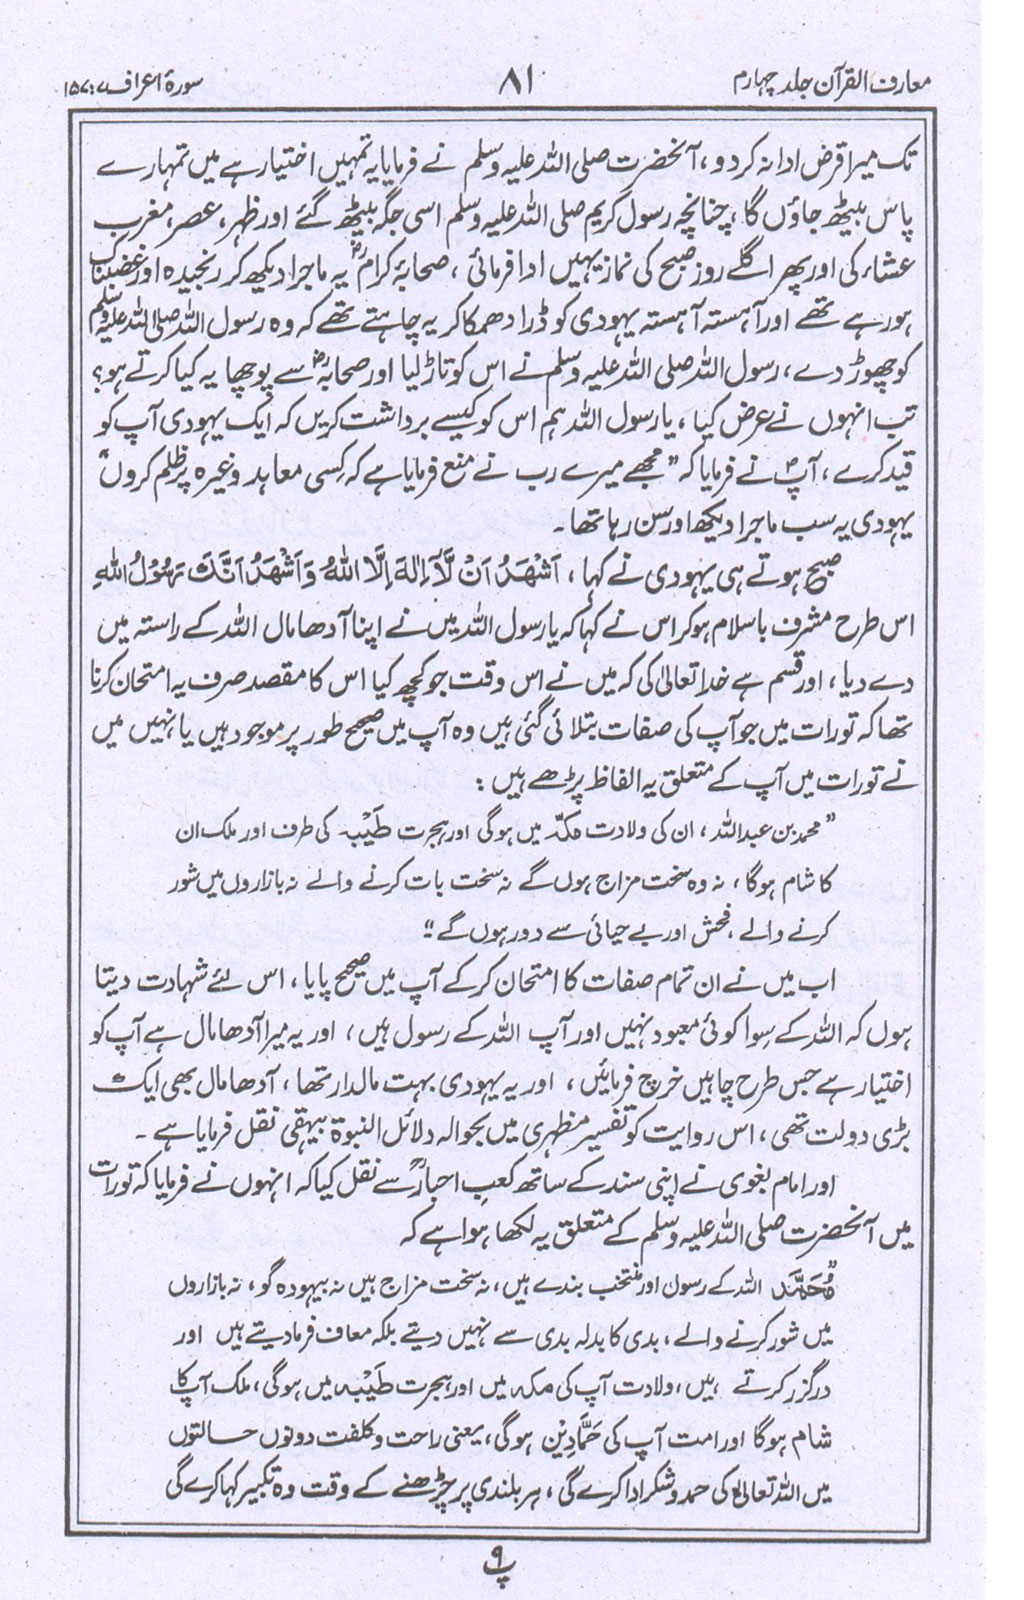 معارف القرآن جلد چہارم
۸۱
سورۂ اعراف ۷ : ۱۵۷
تک میرا قرض ادا نہ کردو، آنحضرت صلی اللہ علیہ وسلم نے فرمایا یہ تمہیں اختیار ہے میں تمہارے
پاس بیٹھ جاؤں گا، چنانچہ رسول کریم صلی اللہ علیہ وسلم اسی جگہ بیٹھ گئے اور ظہر، عصر، مغرب
عشاء کی اور پھر اگلے روز صبح کی نماز یہیں ادا فرمائی، صحابۂ کرامؓ یہ ماجرا دیکھ کر رنجیدہ اور غضبناک
ہو رہے تھے اور آہستہ آہستہ یہودی کو ڈرا دھمکا کر یہ چاہتے تھے کہ وہ رسول اللہ صلی اللہ علیہ وسلم
کو چھوڑ دے، رسول اللہ صلی اللہ علیہ وسلم نے اس کو تاڑ لیا اور صحابہؓ سے پوچھا یہ کیا کرتے ہو؟
تب انہوں نے عرض کیا، یا رسول اللہ ہم اس کو کیسے برداشت کریں کہ ایک یہودی آپ کو
قید کرے، آپؐ نے فرمایا کہ ”مجھے میرے رب نے منع فرمایا ہے کہ کسی معاہد وغیرہ پر ظلم کروں“
یہودی یہ سب ماجرا دیکھ اور سن رہا تھا۔
صبح ہوتے ہی یہودی نے کہا، اَشْهَدُ اَنْ لَّآ اِلٰهَ اِلَّا اللّٰهُ وَاَشْهَدُ اَنَّكَ رَسُوْلُ اللّٰهِ
اس طرح مشرف باسلام ہو کر اس نے کہا کہ یا رسول اللہ میں نے اپنا آدھا مال اللہ کے راستہ میں
دے دیا، اور قسم ہے خدا تعالیٰ کی کہ میں نے اس وقت جو کچھ کیا اس کا مقصد صرف یہ امتحان کرنا
تھا کہ تورات میں جو آپ کی صفات بتلائی گئی ہیں وہ آپ میں صحیح طور پر موجود ہیں یا نہیں میں
نے تورات میں آپ کے متعلق یہ الفاظ پڑھے ہیں :
”محمد بن عبداللہ، ان کی ولادت مکہ میں ہوگی اور ہجرت طَیْبہ کی طرف اور ملک ان
کا شام ہوگا، نہ وہ سخت مزاج ہوں گے نہ سخت بات کرنے والے نہ بازاروں میں شور
کرنے والے، فحش اور بے حیائی سے دور ہوں گے“
اب میں نے ان تمام صفات کا امتحان کر کے آپ میں صحیح پایا، اس لئے شہادت دیتا
ہوں کہ اللہ کے سوا کوئی معبود نہیں اور آپ اللہ کے رسول ہیں، اور یہ میرا آدھا مال ہے آپ کو
اختیار ہے جس طرح چاہیں خرچ فرمائیں، اور یہ یہودی بہت مالدار تھا، آدھا مال بھی ایک
بڑی دولت تھی، اس روایت کو تفسیر مظہری میں بحوالہ دلائل النبوۃ بیہقی نقل فرمایا ہے۔
اور امام بغوی نے اپنی سند کے ساتھ کعبِ احبارؓ سے نقل کیا کہ انہوں نے فرمایا کہ تورات
میں آنحضرت صلی اللہ علیہ وسلم کے متعلق یہ لکھا ہوا ہے کہ
”مُحَمَّد اللہ کے رسول اور منتخب بندے ہیں، نہ سخت مزاج ہیں نہ بیہودہ گو، نہ بازاروں
میں شور کرنے والے، بدی کا بدلہ بدی سے نہیں دیتے بلکہ معاف فرما دیتے ہیں اور
درگزر کرتے ہیں، ولادت آپ کی مکہ میں اور ہجرت طَیْبہ میں ہوگی، ملک آپ کا
شام ہوگا اور امت آپ کی حَمَّادِیْن ہوگی، یعنی راحت وکلفت دونوں حالتوں
میں اللہ تعالیٰ کی حمد وشکر ادا کرے گی، ہر بلندی پر چڑھنے کے وقت وہ تکبیر کہا کرے گی
پ ۹